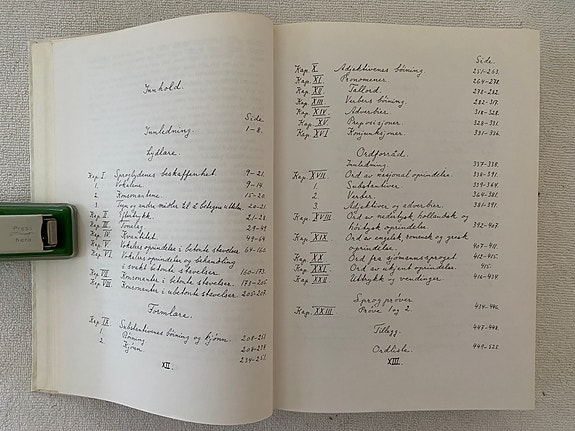 Innhold.
Side
Innledning. 1-8.
Lydlære.
Kap. I. Sproglydenes beskaffenhet. 9-21.
1. Vokalene. 9-14.
2. Konsonantene. 15-20.
3. Tegn og andre midler til å betegne uttale. 20-21.
Kap. II. Eftertrykk. 21-28.
Kap. III. Tonelag. 29-49.
Kap. IV. Kvantitet. 49-64.
Kap. V. Vokalenes oprindelse i betonte stavelser. 64-160.
Kap. VI. Vokalenes oprindelse og behandling
i svakt betonte stavelser. 160-173.
Kap. VII. Konsonanter i betonte stavelser. 173-205.
Kap. VIII. Konsonanter i ubetonte stavelser. 205-207.
Formlære.
Kap. IX. Substantivenes böining og kjönn. 208-251.
1. Böining 208-234.
2. Kjönn. 234-251.
XII.
Side.
Kap. X. Adjektivenes böining. 251-263.
Kap. XI. Pronomener. 264-278.
Kap. XII. Tallord. 278-282.
Kap. XIII. Verbers böining. 282-317.
Kap. XIV. Adverbier. 318-328.
Kap. XV. Preposisjoner. 328-331.
Kap. XVI. Konjunksjoner. 331-336.
Ordforråd.
Innledning. 337-338.
Kap. XVII. Ord av nasjonal oprindelse. 338-391.
1. Substantiver. 339-364.
2. Verber. 364-381.
3. Adjektiver og adverbier. 381-391.
Kap. XVIII. Ord av nedertysk, hollandsk og
höitysk oprindelse 392-407.
Kap. XIX. Ord av engelsk, romansk og gresk
oprindelse. 407-411.
Kap. XX. Ord fra sjömannssproget 412-415.
Kap. XXI. Ord av ukjent oprindelse. 415.
Kap. XXII. Uttrykk og vendinger 416-434.
Sprogpröver
Kap. XXIII. Pröve 1 og 2. 434-446.
Tillegg. 447-448.
Ordliste. 449-528.
XIII.
Press
here